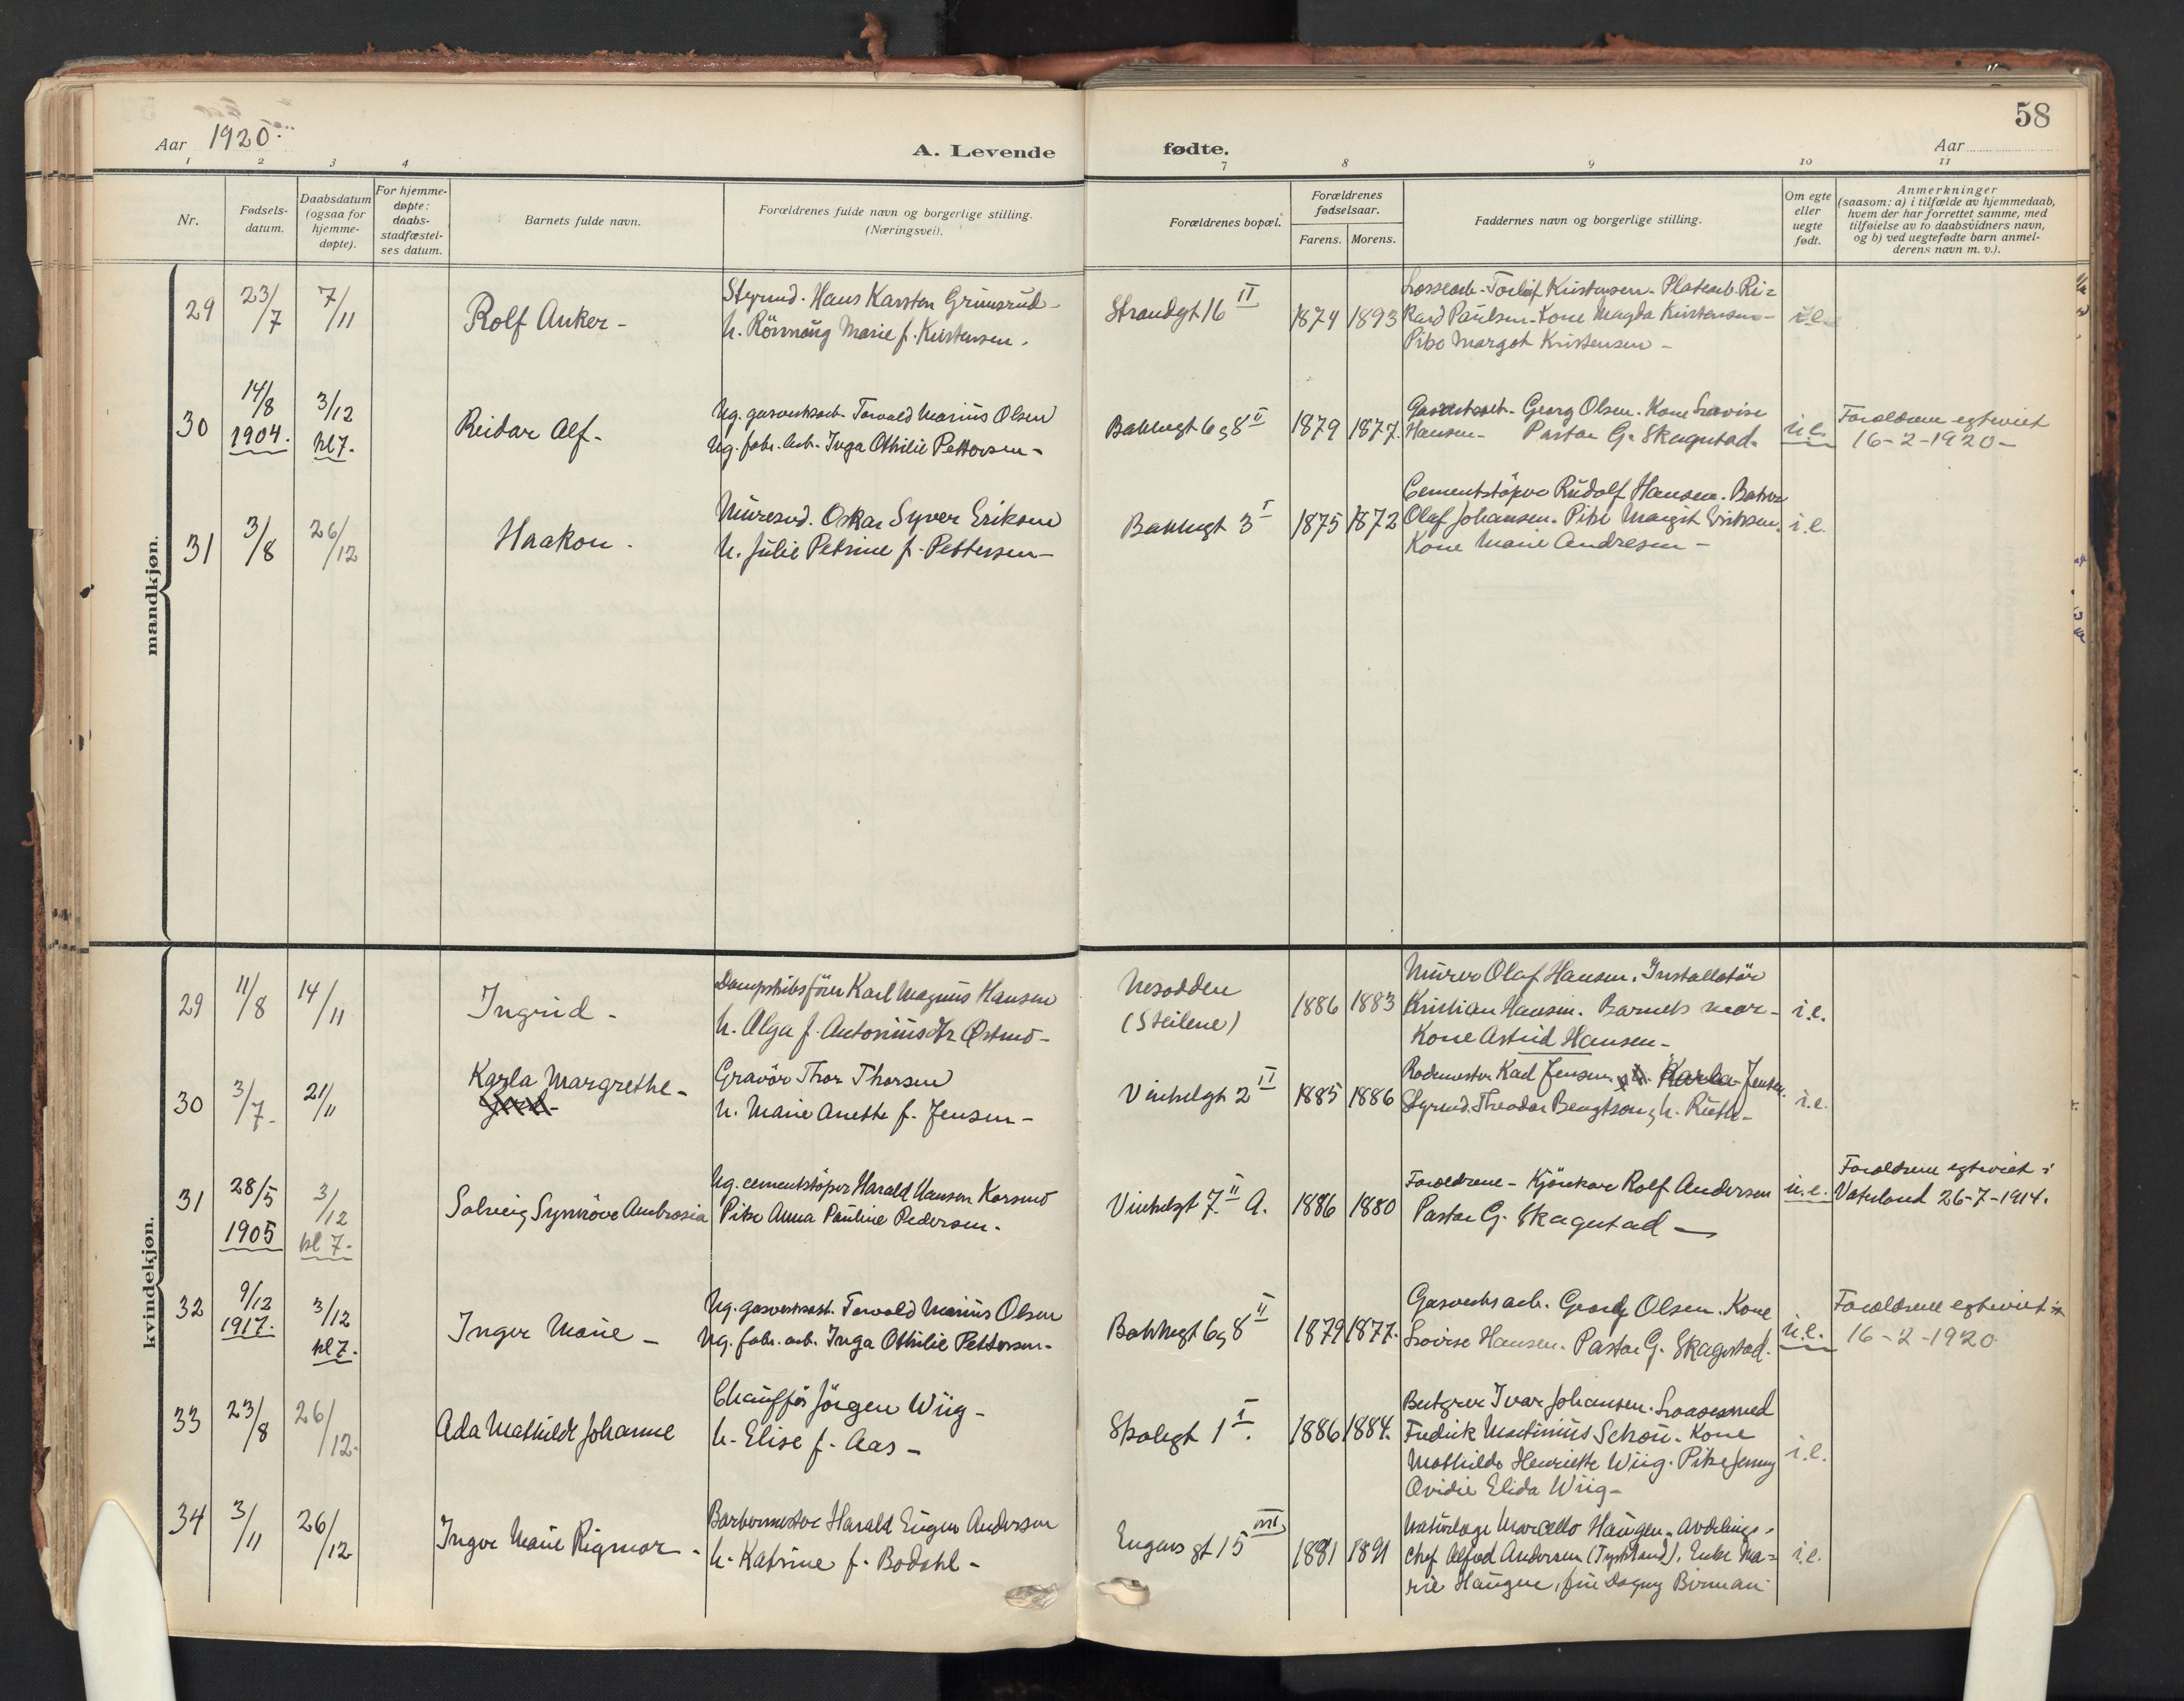 58
Aar 1920.
A. Levende fødte.
Aar
1 2 3 4 7 8 9 10 11
Nr.
Fødsels-
datum.
Daabsdatum
(ogsaa for
hjemme-
døpte).
For hjemme-
døpte:
daabs-
stadfæstel-
ses datum.
Barnets fulde navn.
Forældrenes fulde navn og borgerlige stilling.
(Næringsvei).
Forældrenes bopæl.
Forældrenes
fødselsaar.
Farens. Morens.
Faddernes navn og borgerlige stilling.
Om egte
eller
uegte
født.
Anmerkninger
(saasom: a) i tilfælde av hjemmedaab,
hvem der har forrettet samme, med
tilføielse av to daabsvidners navn,
og b) ved uegtefødte barn anmel-
derens navn m. v.).
mandkjøn.
29 23/7 7/11
Rolf Anker -
Styrmd. Hans Karsten Grimsrud -
h. Rönnaug Marie f. Kristensen.
Strandgt 16 II
1874 1893
Lossearb. Torleif Kristensen. Platearb. Ri=
kard Paulsen. Kone Magda Kristensen -
Pike Margot Kristensen -
i.e.
30 14/8 1904. 3/12 kl 7.
Reidar Alf -
Ug. gasverksarb. Torvald Marius Olsen
Ug. fabr. arb. Inga Othilie Pettersen -
Bakkegt 6 og 8 II
1879 1877.
Gasverksarb. Georg Olsen. Kone Lovise
Hansen - Pastor G. Skagestad.
u.e.
Forældrene egteviet
16-2-1920 -
31 3/8 26/12
Haakon.
Murersvd. Oskar Syver Eriksen
h. Julie Petrine f. Pettersen -
Bakkegt 3 I
1875 1872
Cementstöper Rudolf Hansen. Baker
Olaf Johansen. Pike Margit Eriksen.
Kone Marie Andresen -
i.e.
kvindekjøn.
29 11/8 14/11
Ingrid -
Dampskibsförer Karl Magnus Hansen
h. Olga f. Antoniusdtr Østmo -
Nesodden
(Steilene)
1886 1883
Murer Olaf Hansen. Installatör
Kristian Hansen. Barnets mor -
Kone Astrid Hansen -
i.e.
30 3/7 - 21/11
Karla Margrethe -
Gravör Thor Thorsen
h. Marie Anette f. Jensen -
Vinkelgt 2 II
1885 1886
Rodemester Karl Jensen, h. Karla Jensen.
Styrmd. Theodor Bengtson, h. Ruth -
i.e.
31 28/5 1905 3/12 kl 7.
Solveig Synnöve Ambrosia
Ug. cementstöper Harald Hansen Korsmo
Pike Anna Pauline Pedersen.
Vinkelgt 7 II A.
1886 1880
Forældrene - Kjörekar Rolf Andersen
Pastor G. Skagestad -
u.e.
Forældrene egteviet i
Vaterland 26-7-1914.
32 9/12 1917. 3/12 kl 7.
Inger Marie -
Ug. gasverksarb. Torvald Marius Olsen
Ug. fabr. arb. Inga Othilie Pettersen -
Bakkegt 6 og 8 II
1879 1877.
Gasverks arb. Georg Olsen. Kone
Lovise Hansen. Pastor G. Skagestad.
u.e.
Forældrene egteviet
16-2-1920
33 23/8 26/12.
Ada Mathilde Johanne
Chaufför Jörgen Wiig -
h. Elise f. Aas -
Skolegt 1 I.
1886 1884.
Ivar Johansen. Laasesmed
Fredrik Martinius Schou. Kone
Mathilde Henriette Wiig. Pike Jenny
Ovidie Elida Wiig -
i.e.
34 3/11 26/12
Inger Marie Rigmor -
Barbermester Harald Eugen Andersen
h. Katrine f. Bodahl -
Engens gt 15
1881 1891
Naturlæge Marcello Haugen. Avdelings=
chef Alfred Andersen (Tyskland). Enke Ma=
rie Haugen, frue Dagny Birman
i.e.